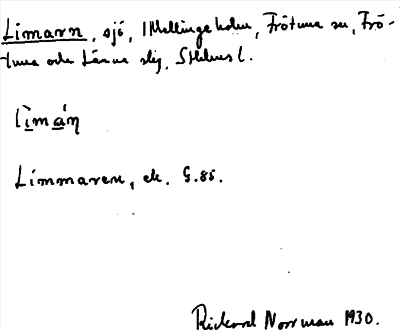 Limarn, sjö, Mellingeholm, Frötuna sn, Frö-
tuna och Länna slg, Sthlms l.
lìmáη
Limmaren, ek. G.bl.
Rickard Norrman 1930.